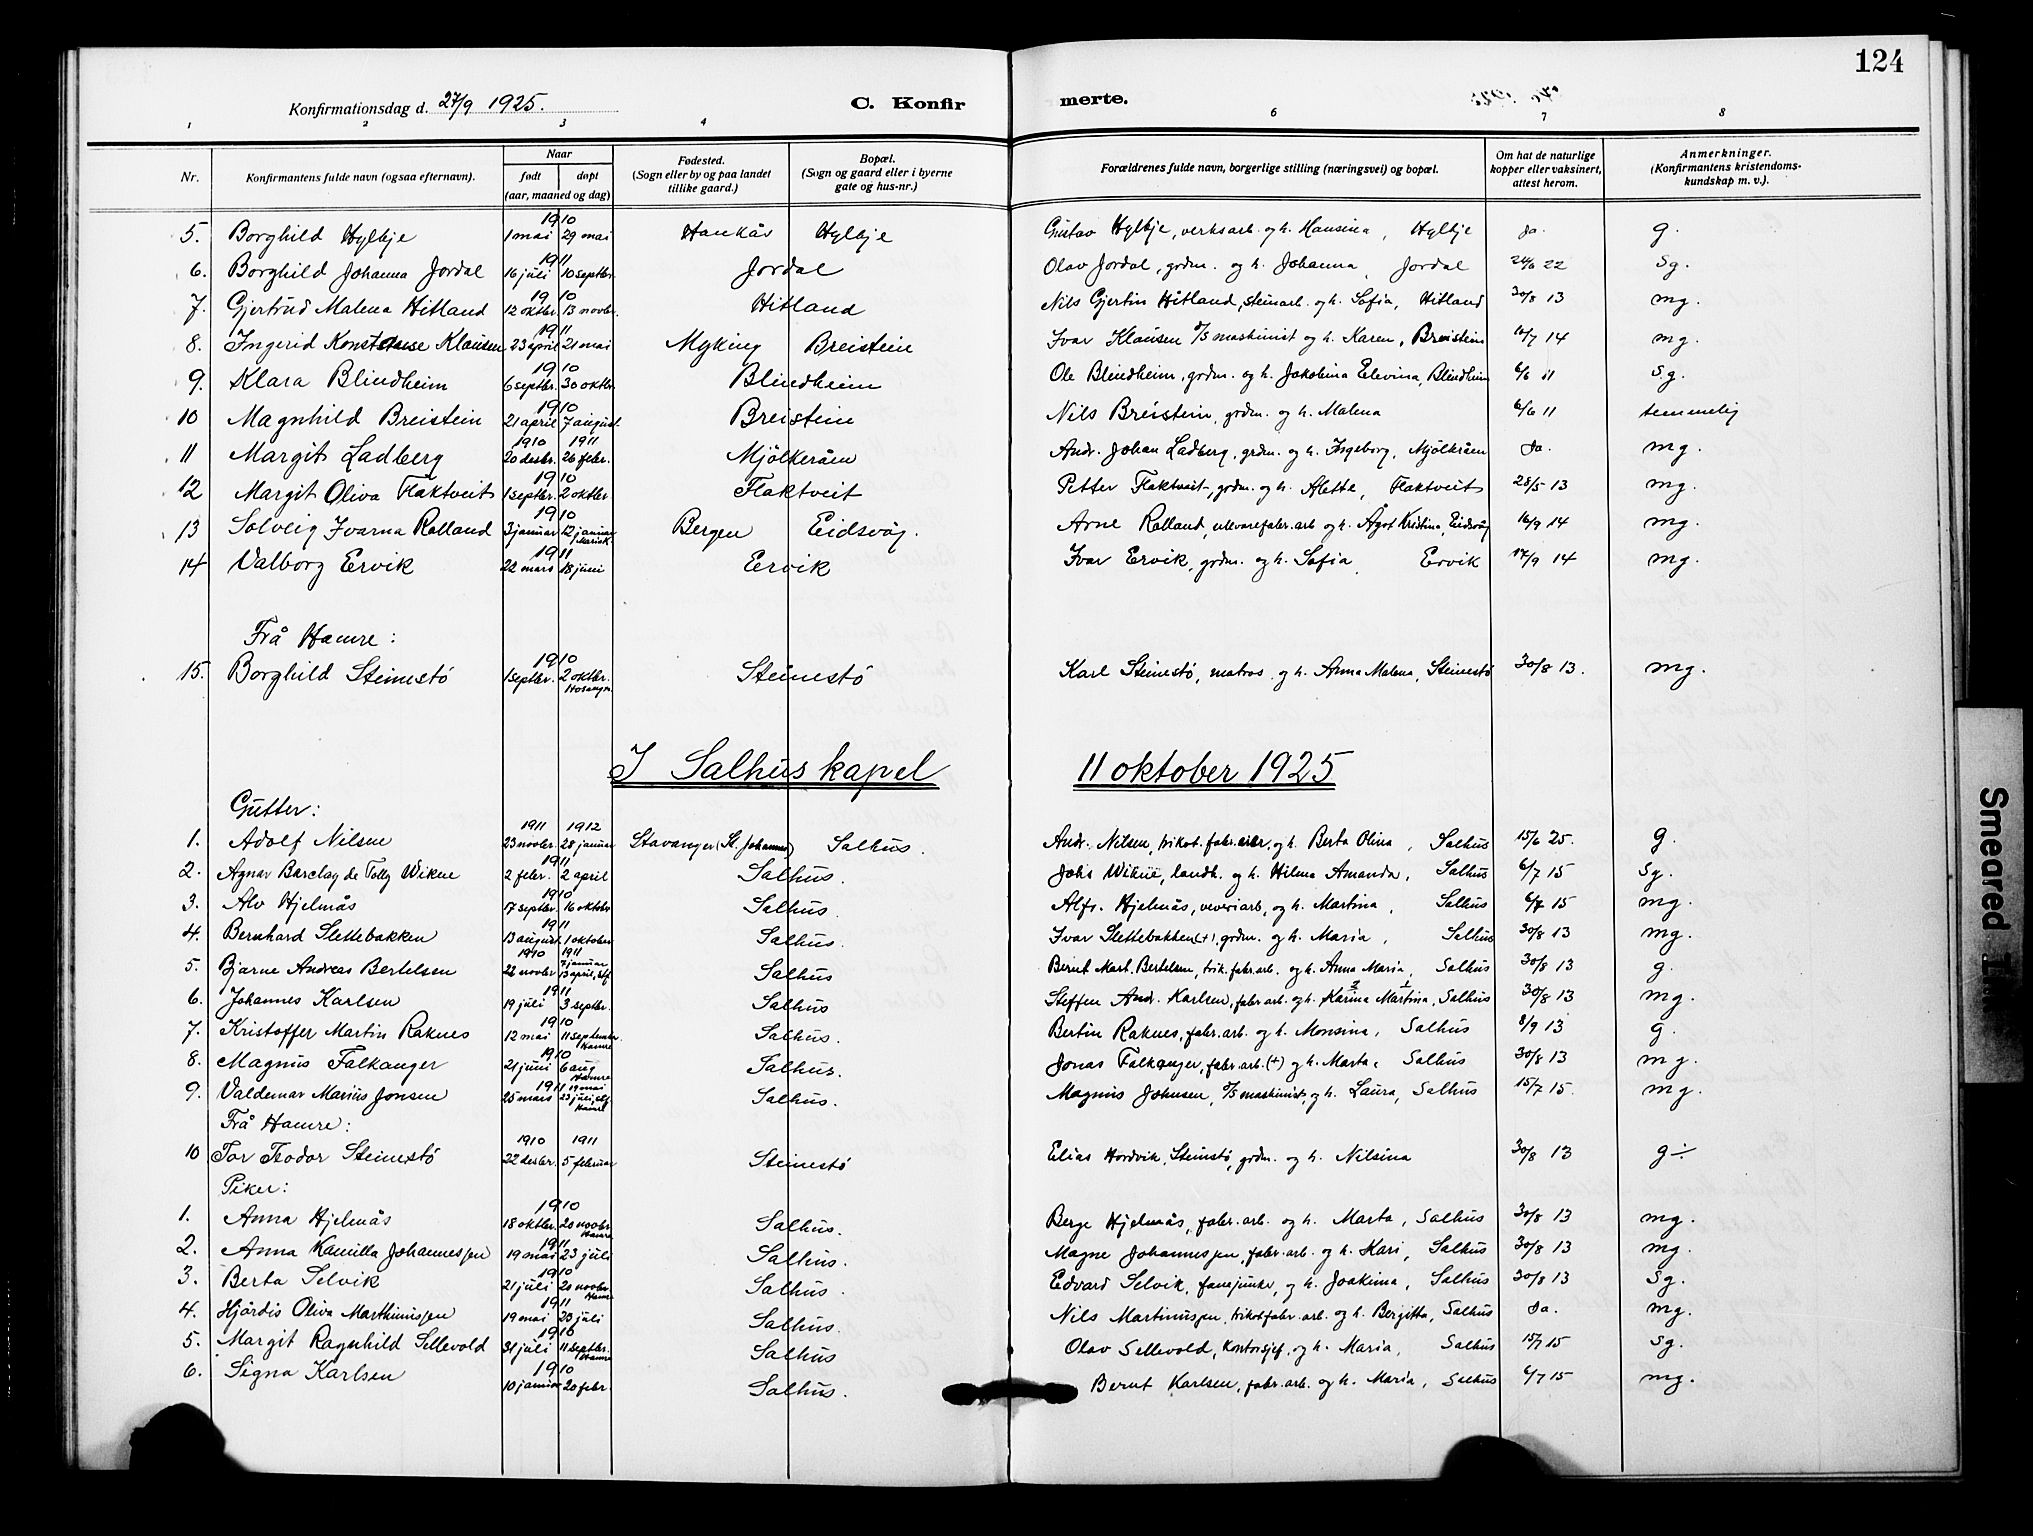 124
Konfirmationsdag d. 27/9 1925. C. Konfir merte.
1 2 3 4 6 7 8
Nr. Konfirmantens fulde navn (ogsaa efternavn). Naar født døpt (aar, maaned og dag) Fødested. (Sogn eller by og paa landet tillike gaard.) Bopæl. (Sogn og gaard eller i byerne gate og hus-nr.) Forældrenes fulde navn, borgerlige stilling (næringsvei) og bopæl. Om hat de naturlige kopper eller vaksinert, attest herom. Anmerkninger. (Konfirmantens kristendomskundskap m. v.).
1910
5. Borghild Hylkje 1 mai 29 mai Haukås Hylkje Gustav Hylkje, verksarb. og h. Hansina, Hylkje Ja. g.
1911
6. Borghild Johanna Jordal 16 juli 10 septbr. Jordal Olav Jordal, grdm. og h. Johanna, Jordal 24/6 22 sg.
1910
7. Gjertrud Malena Hitland 12 oktbr. 13 novbr. Hitland Nils Gjertin Hitland, steinarb. og h. Sofia, Hitland 30/8 13 mg.
1911
8. Ingerid Konstanse Klausen 23 april 21 mai Myking Breistein Ivar Klausen d/s maskinist og h. Karen, Breistein 14 mg.
1910
9. Klara Blindheim 6 septbr. 30 oktbr. Blindheim Ole Blindheim, grdm. og h. Jakobina Elevina, Blindheim 6/6 11 sg.
1910
10 Magnhild Breistein 21 april 7 august Breistein Nils Breistein, grdm. og h. Malena 6/6 11 temmelig
1910 1911
11 Margit Ladberg 20 desbr. 26 febr. Mjölkeråen Andr. Johan Ladberg, grdm. og h. Ingeborg, Mjölkråen Ja. mg.
1910
12 Margit Oliva Flaktveit 1 septbr. 2 oktbr Flaktveit Petter Flaktveit, grdm. og h. Alette, Flaktveit 28/5 13 mg.
1910
13 Solveig Ivarna Rolland 3 januar 12 januar Mariek. Bergen Eidsvåg. Arne Rolland, ullvarefabr. arb og h. Ågot Kristina, Eidsvåg 16/9 14 mg.
1911
14 Valborg Ervik 22 mars 18 juni Ervik Ivar Ervik, grdm. og h. Sofia, Ervik 17/9 14 mg.
Frå Hamre:
1910
15. Borghild Steinestö 1 septbr. 2 oktbr. Hosangr. Steinestö Karl Steinestö, matros og h. Anna Malena, Steinestö 30/8 13. mg.
I Salhus kapel 11 oktober 1925
Gutter:
1911 1912
1. Adolf Nilsen 23 novbr. 28 januar Stavanger (St. Johannes) Salhus. Andr. Nilsen, trikot. fabr. arb, og h. Berta Olina, Salhus 15/6 25. g.
1911
2. Agnar Barclay de Tolly Wikne 2 febr. 2 april Salhus. Johs Wikne, landh. og h. Hilma Amanda, Salhus 6/7 15 sg.
1910
3. Alv Hjelmås 17 septbr 16 oktobr Salhus. Alfr. Hjelmås, veveriarb, og h. Martina, Salhus 6/7 15 mg.
1911
4. Bernhard Slettebakken 13 august 1 oktober Salhus. Ivar Slettebakken (+), grdm. og h. Maria, Salhus 30/8 13 mg.
1910 1911
5. Bjarne Andreas Bertelsen 22 novbr 7 januar 13 april, stf. Salhus Bernt Mart. Bertelsen, trik. fabr. arb. og h. Anna Maria, Salhus 30/8 13 g.
1911
6. Johannes Karlsen 19 juli 3 septbr. Salhus Steffen Andr. Karlsen, fabr. arb. og h. Karina Martina, Salhus 30/8 13 mg.
1910
7. Kristoffer Martin Raknes 12 mai 11 september Hamre Salhus. Bertin Raknes, fabr. arb. og h. Monsina, Salhus 8/9 13 g.
1910
8. Magnus Falkanger 21 juni 6 aug Hamre Salhus. Jonas Falkanger, fabr. arb. (+) og h. Marta, Salhus 30/8 13 mg.
1911
9. Valdemar Marius Jonsen 25 mars 19 mai 23 juli, stf Hamre Salhus. Magnus Johnsen, d/s maskinist, og h. Laura, Salhus 15/7 15. mg.
Frå Hamre:
1910 1911
10 Tor Teodor Steinestö 22 desbr. 5 februar Steinestö Elias Hordvik, Steinestö, grdm. og h. Nilsina 30/8 13 g÷
Piker:
1910
1. Anna Hjelmås 18 oktbr. 20 novbr. Hamre Salhus. Berge Hjelmås, fabr. arb. og h. Marta, Salhus 30/8 13 mg.
1911
2. Anna Kamilla Johannessen 19 mai 23 juli Salhus. Magne Johannessen, fabr. arb. og h. Kari, Salhus 30/8 13 mg.
1910
3. Berta Selvik 21 juli 20 novbr. Hamre Salhus. Edvard Selvik, fanejunker, og h. Joakima, Salhus 30/8 13 sg.
1911
4. Hjördis Oliva Marthinussen 19 mai 23 juli Salhus. Nils Martinussen, trikotfabr. arb. og h. Bergitta, Salhus Ja. mg.
1910
5. Margit Ragnhild Sellevold 31 juli 11 septbr. Hamre Salhus Olav Sellevold, kontorsjef, og h. Maria, Salhus 15/7 15 sg.
1910
6. Signa Karlsen 10 januar 20 febr. Salhus. Bernt Karlsen, fabr. arb. og h. Maria, Salhus 6/7 15 mg.
Smeared